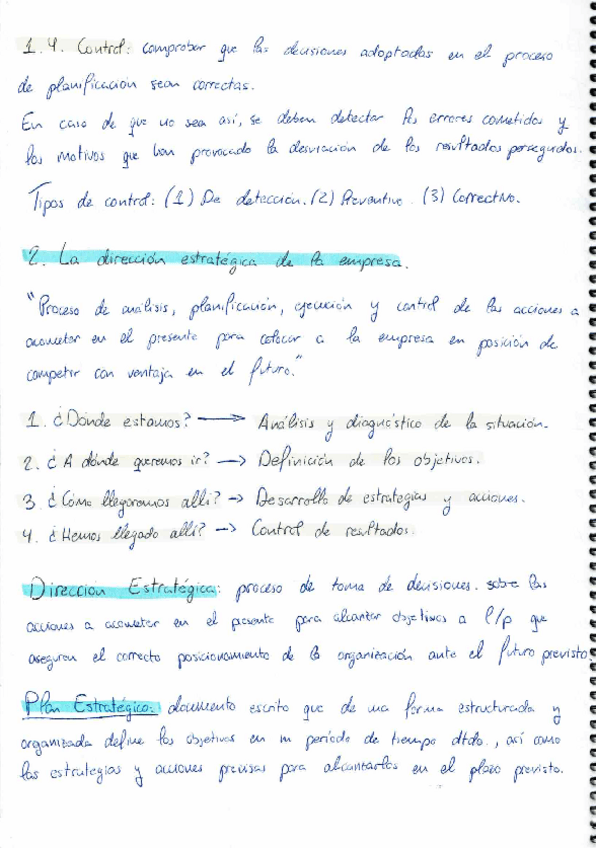 1.4. Control: comprobar que las decisiones adoptadas en el proceso
de planificación sean correctas.
En caso de que no sea así, se deben detectar los errores cometidos y
los motivos que han provocado la desviación de los resultados perseguidos.
Tipos de control: (1) De detección. (2) Preventivo. (3) Correctivo.
2. La dirección estratégica de la empresa.
"Proceso de análisis, planificación, ejecución y control de las acciones a
acometer en el presente para colocar a la empresa en posición de
competir con ventaja en el futuro."
1. ¿Dónde estamos? → Análisis y diagnóstico de la situación.
2. ¿A dónde queremos ir? → Definición de los objetivos.
3. ¿Cómo llegaremos allí? → Desarrollo de estrategias y acciones.
4. ¿Hemos llegado allí? → Control de resultados.
Dirección Estratégica: proceso de toma de decisiones. sobre las
acciones a acometer en el presente para alcanzar objetivos a l/p que
aseguren el correcto posicionamiento de la organización ante el futuro previsto.
Plan Estratégico: documento escrito que de una forma estructurada y
organizada define los objetivos en un período de tiempo dtdo., así como
las estrategias y acciones precisas para alcanzarlos en el plazo previsto.